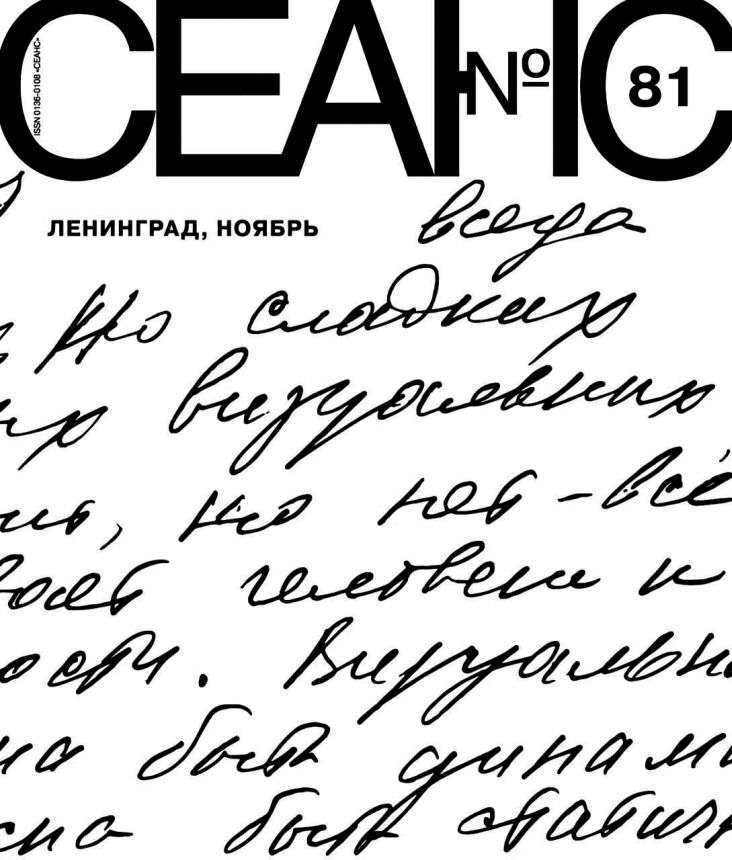 СЕАНС
№ 81
ISSN 0136-0108 «СЕАНС»
ЛЕНИНГРАД, НОЯБРЬ
всегда
но сладких
их визуальных
но нет – всё
человек и
ости. Визуальн
на быть динами
на быть статичн